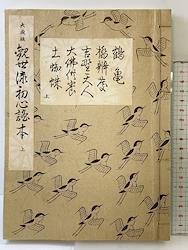 大成版
観世流初心謡本
上
鶴亀
橋弁慶
吉野天人
大佛供養
土蜘蛛
上